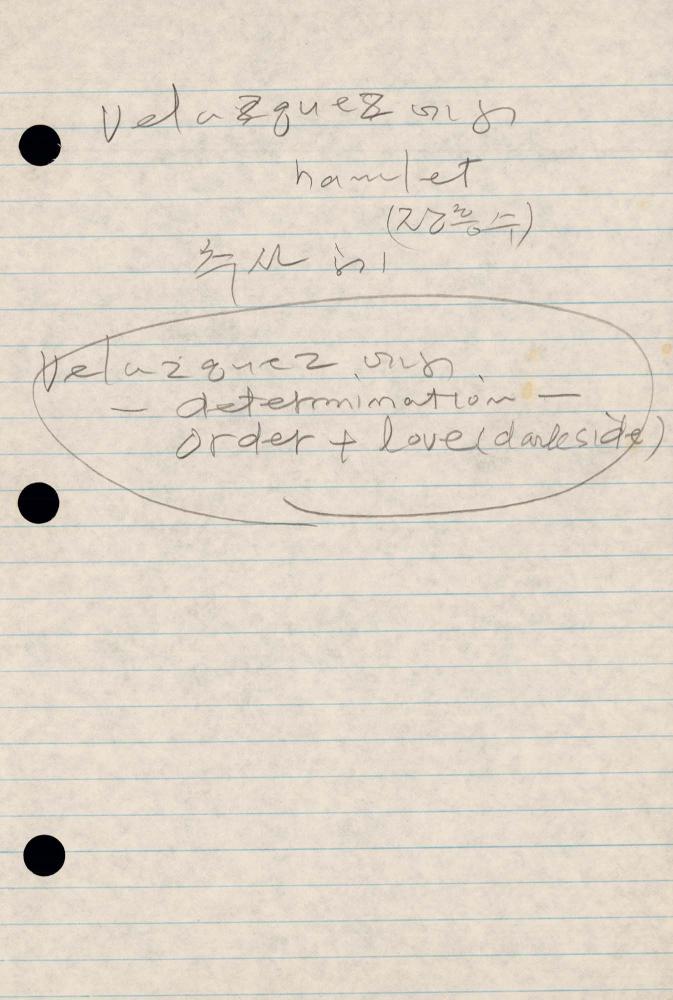 Velazquez
hamlet
(장흥수)
추사
Velazquez
— determination —
order + love (darkside)